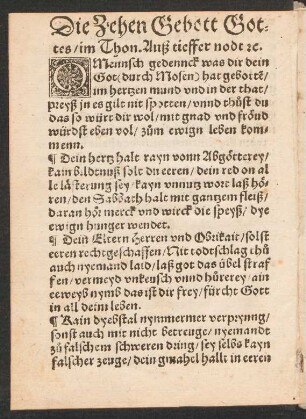 Die Zehen Gebott Got-
tes/im Thon. Auß tieffer nodt ꝛc.
O Mennsch gedennck was dir dein
Got (durch Mosen) hat gebotte/
im hertzen mund vnd in der that/
preyß jn es gilt nit spotten/vnnd thüst du
das so würt dir wol/mit gnad vnd fröud
würdst eben vol/zům ewign leben kom-
menn.
¶ Dein hertz halt rayn vonn Abgötterey/
kain bildtnuß solt du eeren/dein red on al
le lästerung sey/kayn vnnutz wort laß hö-
ren/den Sabbath halt mit gantzem fleiß/
daran hör merck vnd wirck die speyß/dye
ewign hunger wendet.
¶ Dein Eltern Herren vnd Obrikait/solst
eeren rechtgeschaffen/Nit todtschlag thů
auch nyemand laid/laß got das übel straf
fen/vermeyd vnkeusch vnnd hůrerey/ain
eeweyb nymb das ist dir frey/fürcht Gott
in all deim leben.
¶ Kain dyebstal nymmermer verpryng/
sonst auch mit nicht betreuge/nyemandt
zů falschem schweren dring/sey selbs kayn
falscher zeuge/dein gmahel hallt in eeren